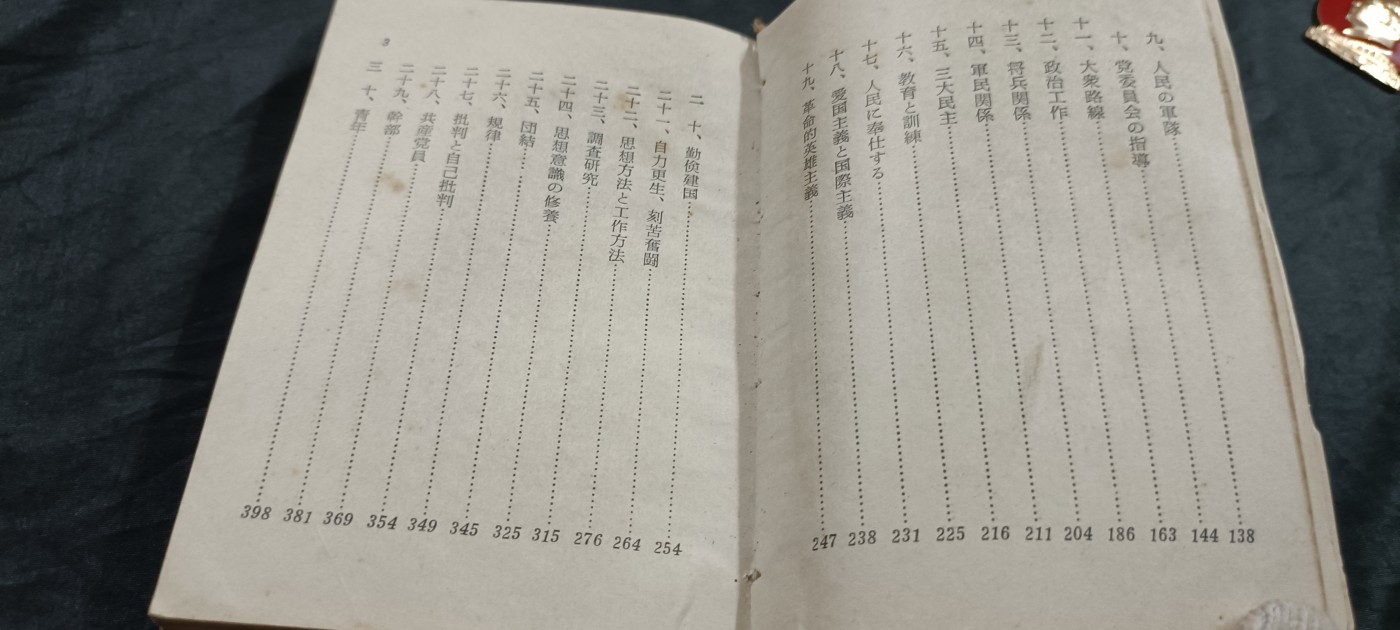 九、人民の軍隊……138
十、党委員会の指導……144
十一、大衆路線……163
十二、政治工作……186
十三、将兵関係……204
十四、軍民関係……211
十五、三大民主……216
十六、教育と訓練……225
十七、人民に奉仕する……231
十八、愛国主義と国際主義……238
十九、革命的英雄主義……247
二 十、勤倹建国……254
二十一、自力更生、刻苦奮闘……264
二十二、思想方法と工作方法……276
二十三、調査研究……315
二十四、思想意識の修養……325
二十五、団結……345
二十六、規律……349
二十七、批判と自己批判……354
二十八、共産党員……369
二十九、幹部……381
三 十、青年……398
3